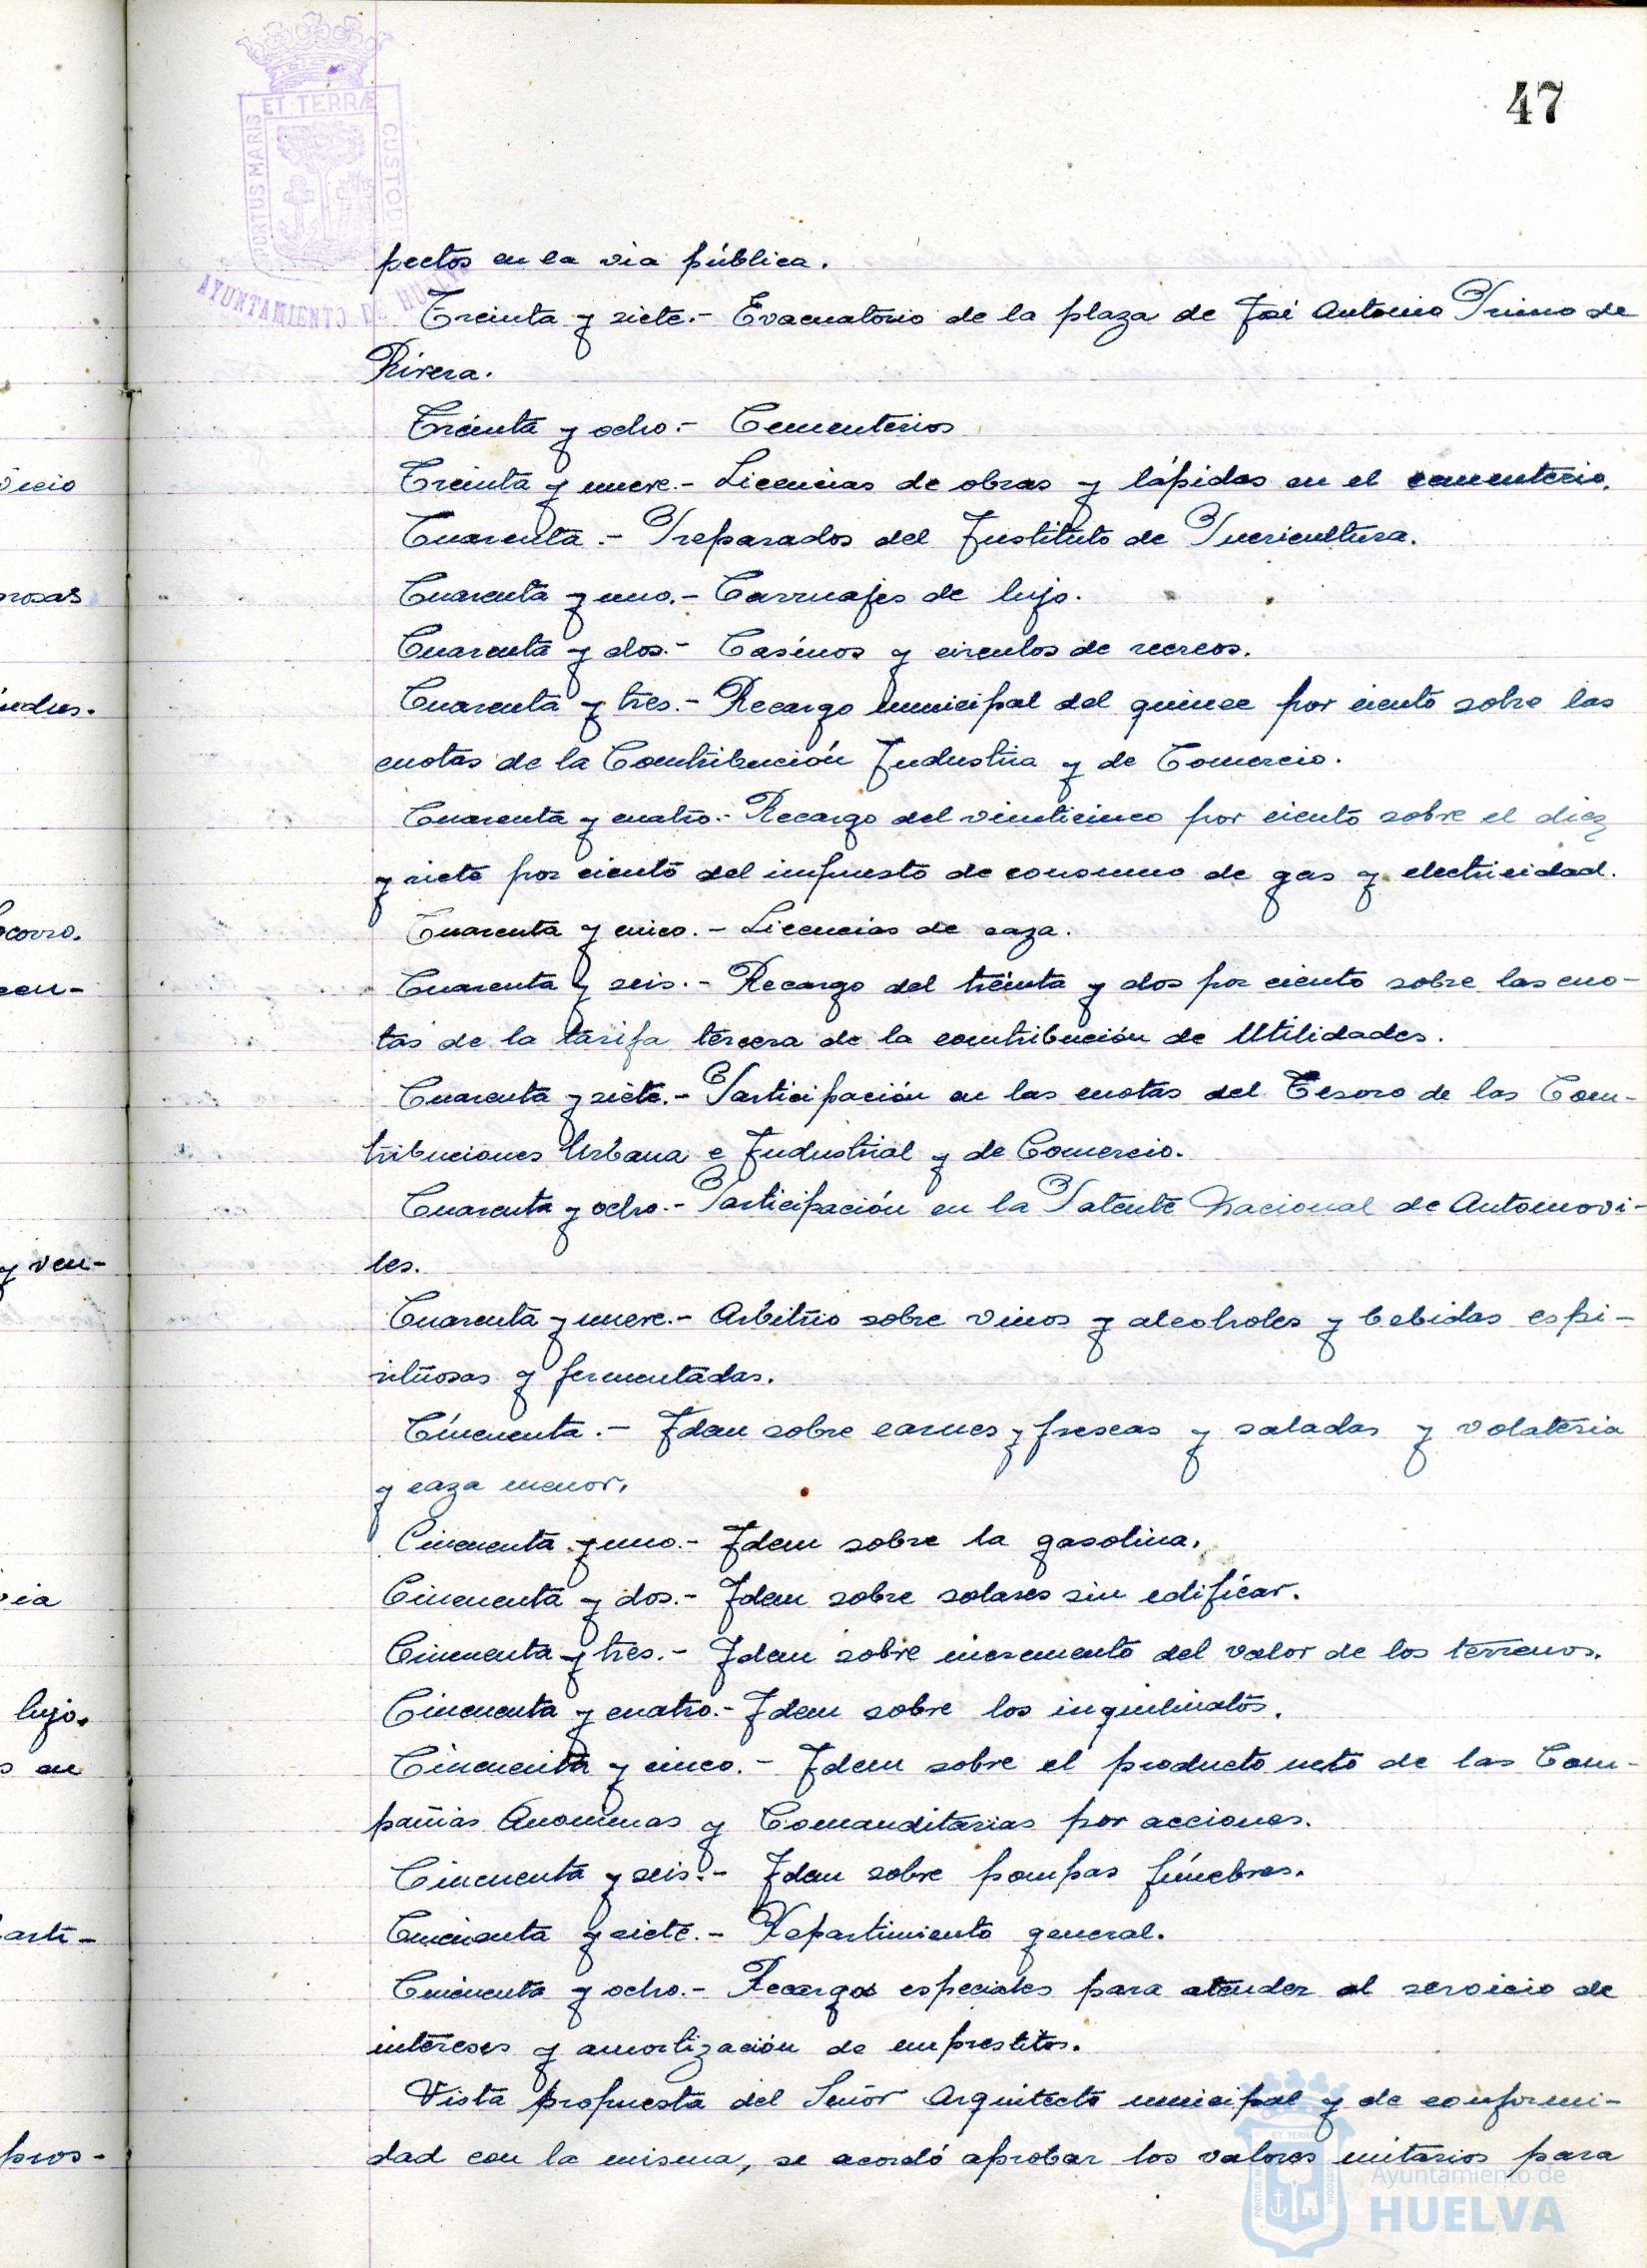 47
PORTUS MARIS ET TERRÆ CUSTOD
AYUNTAMIENTO DE HUELVA
pectos en la via pública.
Treinta y siete.- Evacuatorio de la plaza de José Antonio Primo de
Rivera.
Treinta y ocho.- Cementerios
Treinta y nueve.- Licencias de obras y lápidas en el cementerio.
Cuarenta.- Preparados del Instituto de Puericultura.
Cuarenta y uno.- Carruajes de lujo.
Cuarenta y dos.- Casinos y circulos de recreos.
Cuarenta y tres.- Recargo municipal del quince por ciento sobre las
cuotas de la Contribución Industria y de Comercio.
Cuarenta y cuatro.- Recargo del vinticinco por ciento sobre el diez
y siete por ciento del impuesto de consumo de gas y electricidad.
Cuarenta y cinco.- Licencias de caza.
Cuarenta y seis.- Recargo del treinta y dos por ciento sobre las cuo-
tas de la tarifa tercera de la contribución de Utilidades.
Cuarenta y siete.- Participación en las cuotas del Tesoro de las Con-
tribuciones Urbana e Industrial y de Comercio.
Cuarenta y ocho.- Participación en la Patente Nacional de Automovi-
les.
Cuarenta y nueve.- Arbitrio sobre vinos y alcoholes y bebidas espi-
rituosas y fermentadas.
Cincuenta.- Idem sobre carnes y frescas y saladas y volateria
y caza menor.
Cincuenta y uno.- Idem sobre la gasolina.
Cincuenta y dos.- Idem sobre solares sin edificar.
Cincuenta y tres.- Idem sobre incremento del valor de los terrenos.
Cincuenta y cuatro.- Idem sobre los inquilinatos.
Cincuenta y cinco.- Idem sobre el producto neto de las Com-
pañias Anonimas y Comanditarias por acciones.
Cincuenta y seis.- Idem sobre pompas fúnebres.
Cincuenta y siete.- Repartimiento general.
Cincuenta y ocho.- Recargos especiales para atender al servicio de
intereses y amortización de emprestitos.
Vista propuesta del Señor Arquitecto municipal y de conformi-
dad con la misma, se acordó aprobar los valores unitarios para
vicio
rosas
ocorro.
y ven-
via
lujo.
s en
arti-
pros-
Ayuntamiento de
HUELVA